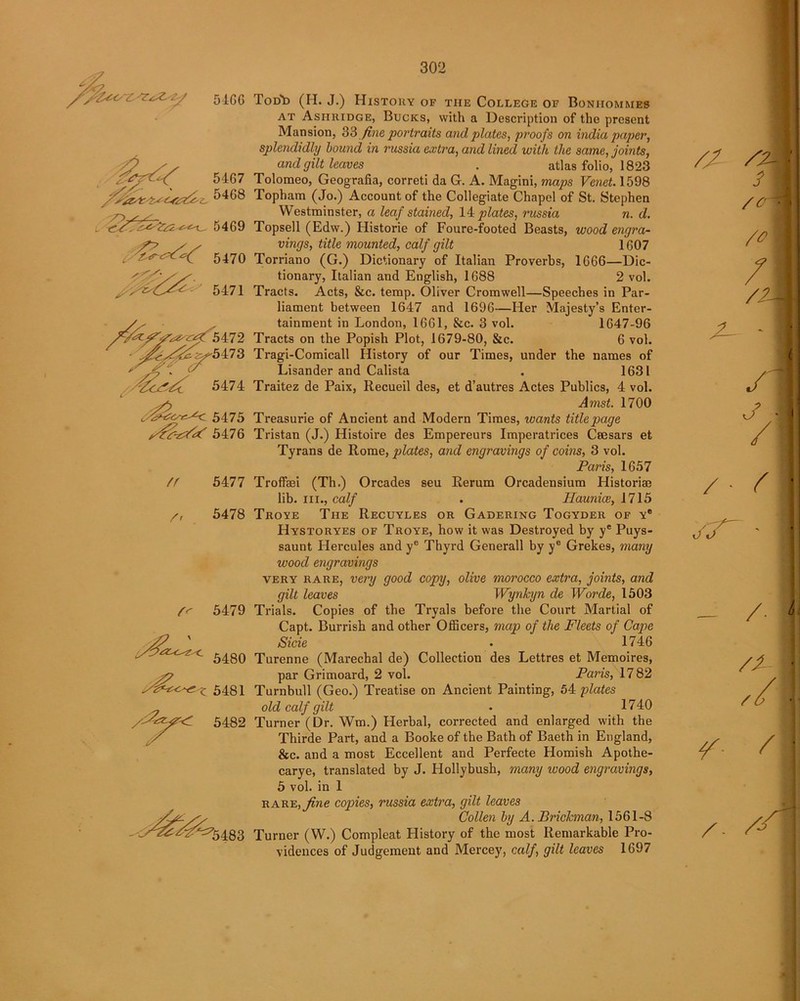 302
5466 Todd (H. J.) History of the College of Bonhommes
at Ashridge, Bucks, with a Description of the present
Mansion, 33 fine portraits and plates, proofs on india paper,
splendidly bound in russia extra, and lined with the same, joints,
and gilt leaves . atlas folio, 1823
5467 Tolomeo, Geografia, correti da G. A. Magini, maps Venet. 1598
5468 Topham (Jo.) Account of the Collegiate Chapel of St. Stephen
Westminster, a leaf stained, 14 plates, russia n. d.
5469 Topsell (Edw.) Historie of Foure-footed Beasts, wood engra-
vings, title mounted, calf gilt 1607
5470 Torriano (G.) Dictionary of Italian Proverbs, 1666—Dic-
tionary, Italian and English, 1688 2 vol.
5471 Tracts. Acts, &c. temp. Oliver Cromwell—Speeches in Par-
liament between 1647 and 1696—Her Majesty's Enter-
tainment in London, 1661, &c. 3 vol. 1647-96
5472 Tracts on the Popish Plot, 1679-80, &c. 6 vol.
5473 Tragi-Comicall History of our Times, under the names of
Lisander and Calista . 1631
5474 Traitez de Paix, Recueil des, et d'autres Actes Publics, 4 vol.
Amst. 1700
5475 Treasurie of Ancient and Modern Times, wants title page
5476 Tristan (J.) Histoire des Empereurs Imperatrices Cæsars et
Tyrans de Rome, plates, and engravings of coins, 3 vol.
Paris, 1657
5477 Troffæi (Th.) Orcades seu Rerum Orcadensium Historiæ
lib. III., calf . Hauniæ, 1715
5478 Troye The Recuyles or Gadering Togyder of yᵉ
Hystoryes of Troye, how it was Destroyed by yᵉ Puys-
saunt Hercules and yᵉ Thyrd Generall by yᵉ Grekes, many
wood engravings
VERY RARE, very good copy, olive morocco extra, joints, and
gilt leaves Wynkyn de Worde, 1503
5479 Trials. Copies of the Tryals before the Court Martial of
Capt. Burrish and other Officers, map of the Fleets of Cape
Sicie . 1746
5480 Turenne (Marechal de) Collection des Lettres et Memoires,
par Grimoard, 2 vol. Paris, 1782
5481 Turnbull (Geo.) Treatise on Ancient Painting, 54 plates
old calf gilt . 1740
5482 Turner (Dr. Wm.) Herbal, corrected and enlarged with the
Thirde Part, and a Booke of the Bath of Baeth in England,
&c. and a most Eccellent and Perfecte Homish Apothe-
carye, translated by J. Hollybush, many wood engravings,
5 vol. in 1
RARE, fine copies, russia extra, gilt leaves
Collen by A. Brickman, 1561-8
5483 Turner (W.) Compleat History of the most Remarkable Pro-
vidences of Judgement and Mercey, calf, gilt leaves 1697